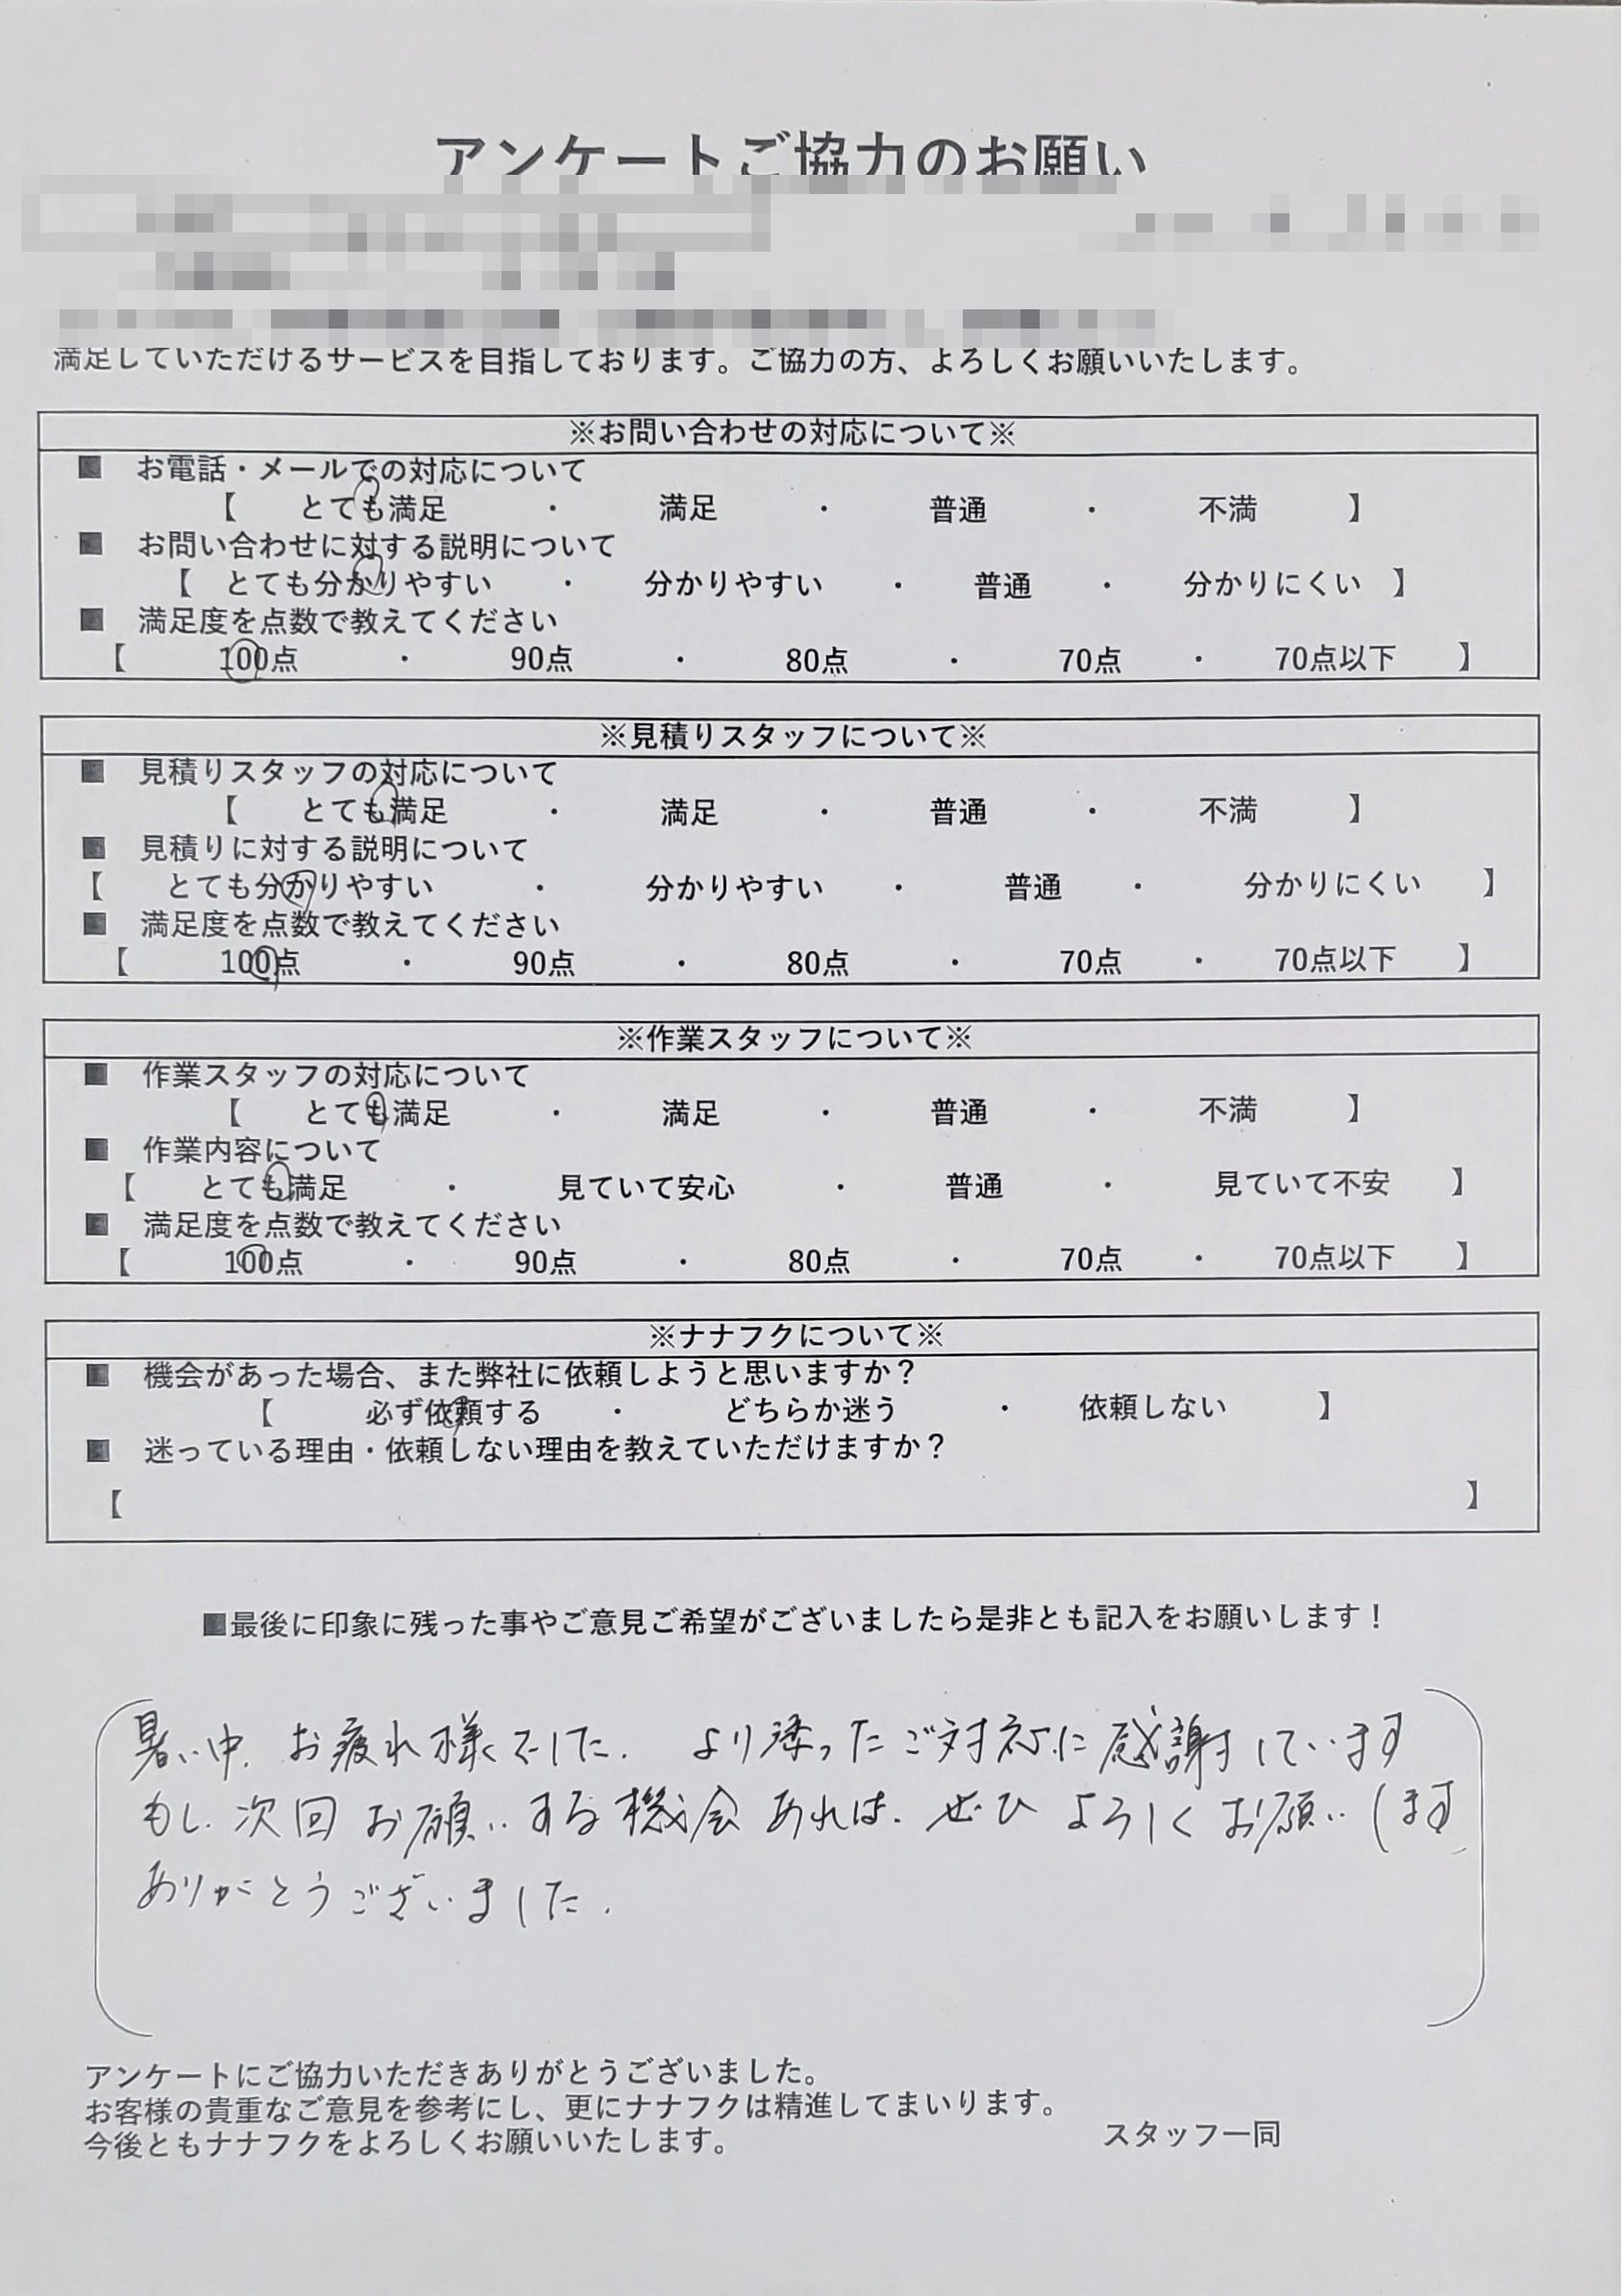 アンケートご協力のお願い
満足していただけるサービスを目指しております。ご協力の方、よろしくお願いいたします。
※お問い合わせの対応について※
■ お電話・メールでの対応について
【 とても満足 ・ 満足 ・ 普通 ・ 不満 】
■ お問い合わせに対する説明について
【 とても分かりやすい ・ 分かりやすい ・ 普通 ・ 分かりにくい 】
■ 満足度を点数で教えてください
【 100点 ・ 90点 ・ 80点 ・ 70点 ・ 70点以下 】
※見積りスタッフについて※
■ 見積りスタッフの対応について
【 とても満足 ・ 満足 ・ 普通 ・ 不満 】
■ 見積りに対する説明について
【 とても分かりやすい ・ 分かりやすい ・ 普通 ・ 分かりにくい 】
■ 満足度を点数で教えてください
【 100点 ・ 90点 ・ 80点 ・ 70点 ・ 70点以下 】
※作業スタッフについて※
■ 作業スタッフの対応について
【 とても満足 ・ 満足 ・ 普通 ・ 不満 】
■ 作業内容について
【 とても満足 ・ 見ていて安心 ・ 普通 ・ 見ていて不安 】
■ 満足度を点数で教えてください
【 100点 ・ 90点 ・ 80点 ・ 70点 ・ 70点以下 】
※ナナフクについて※
■ 機会があった場合、また弊社に依頼しようと思いますか？
【 必ず依頼する ・ どちらか迷う ・ 依頼しない 】
■ 迷っている理由・依頼しない理由を教えていただけますか？
【 】
■最後に印象に残った事やご意見ご希望がございましたら是非とも記入をお願いします！
暑い中、お疲れ様でした. より添ったご対応に感謝しています
もし、次回お願いする機会あれば、ぜひよろしくお願いします
ありがとうございました.
アンケートにご協力いただきありがとうございました。
お客様の貴重なご意見を参考にし、更にナナフクは精進してまいります。
今後ともナナフクをよろしくお願いいたします。
スタッフ一同